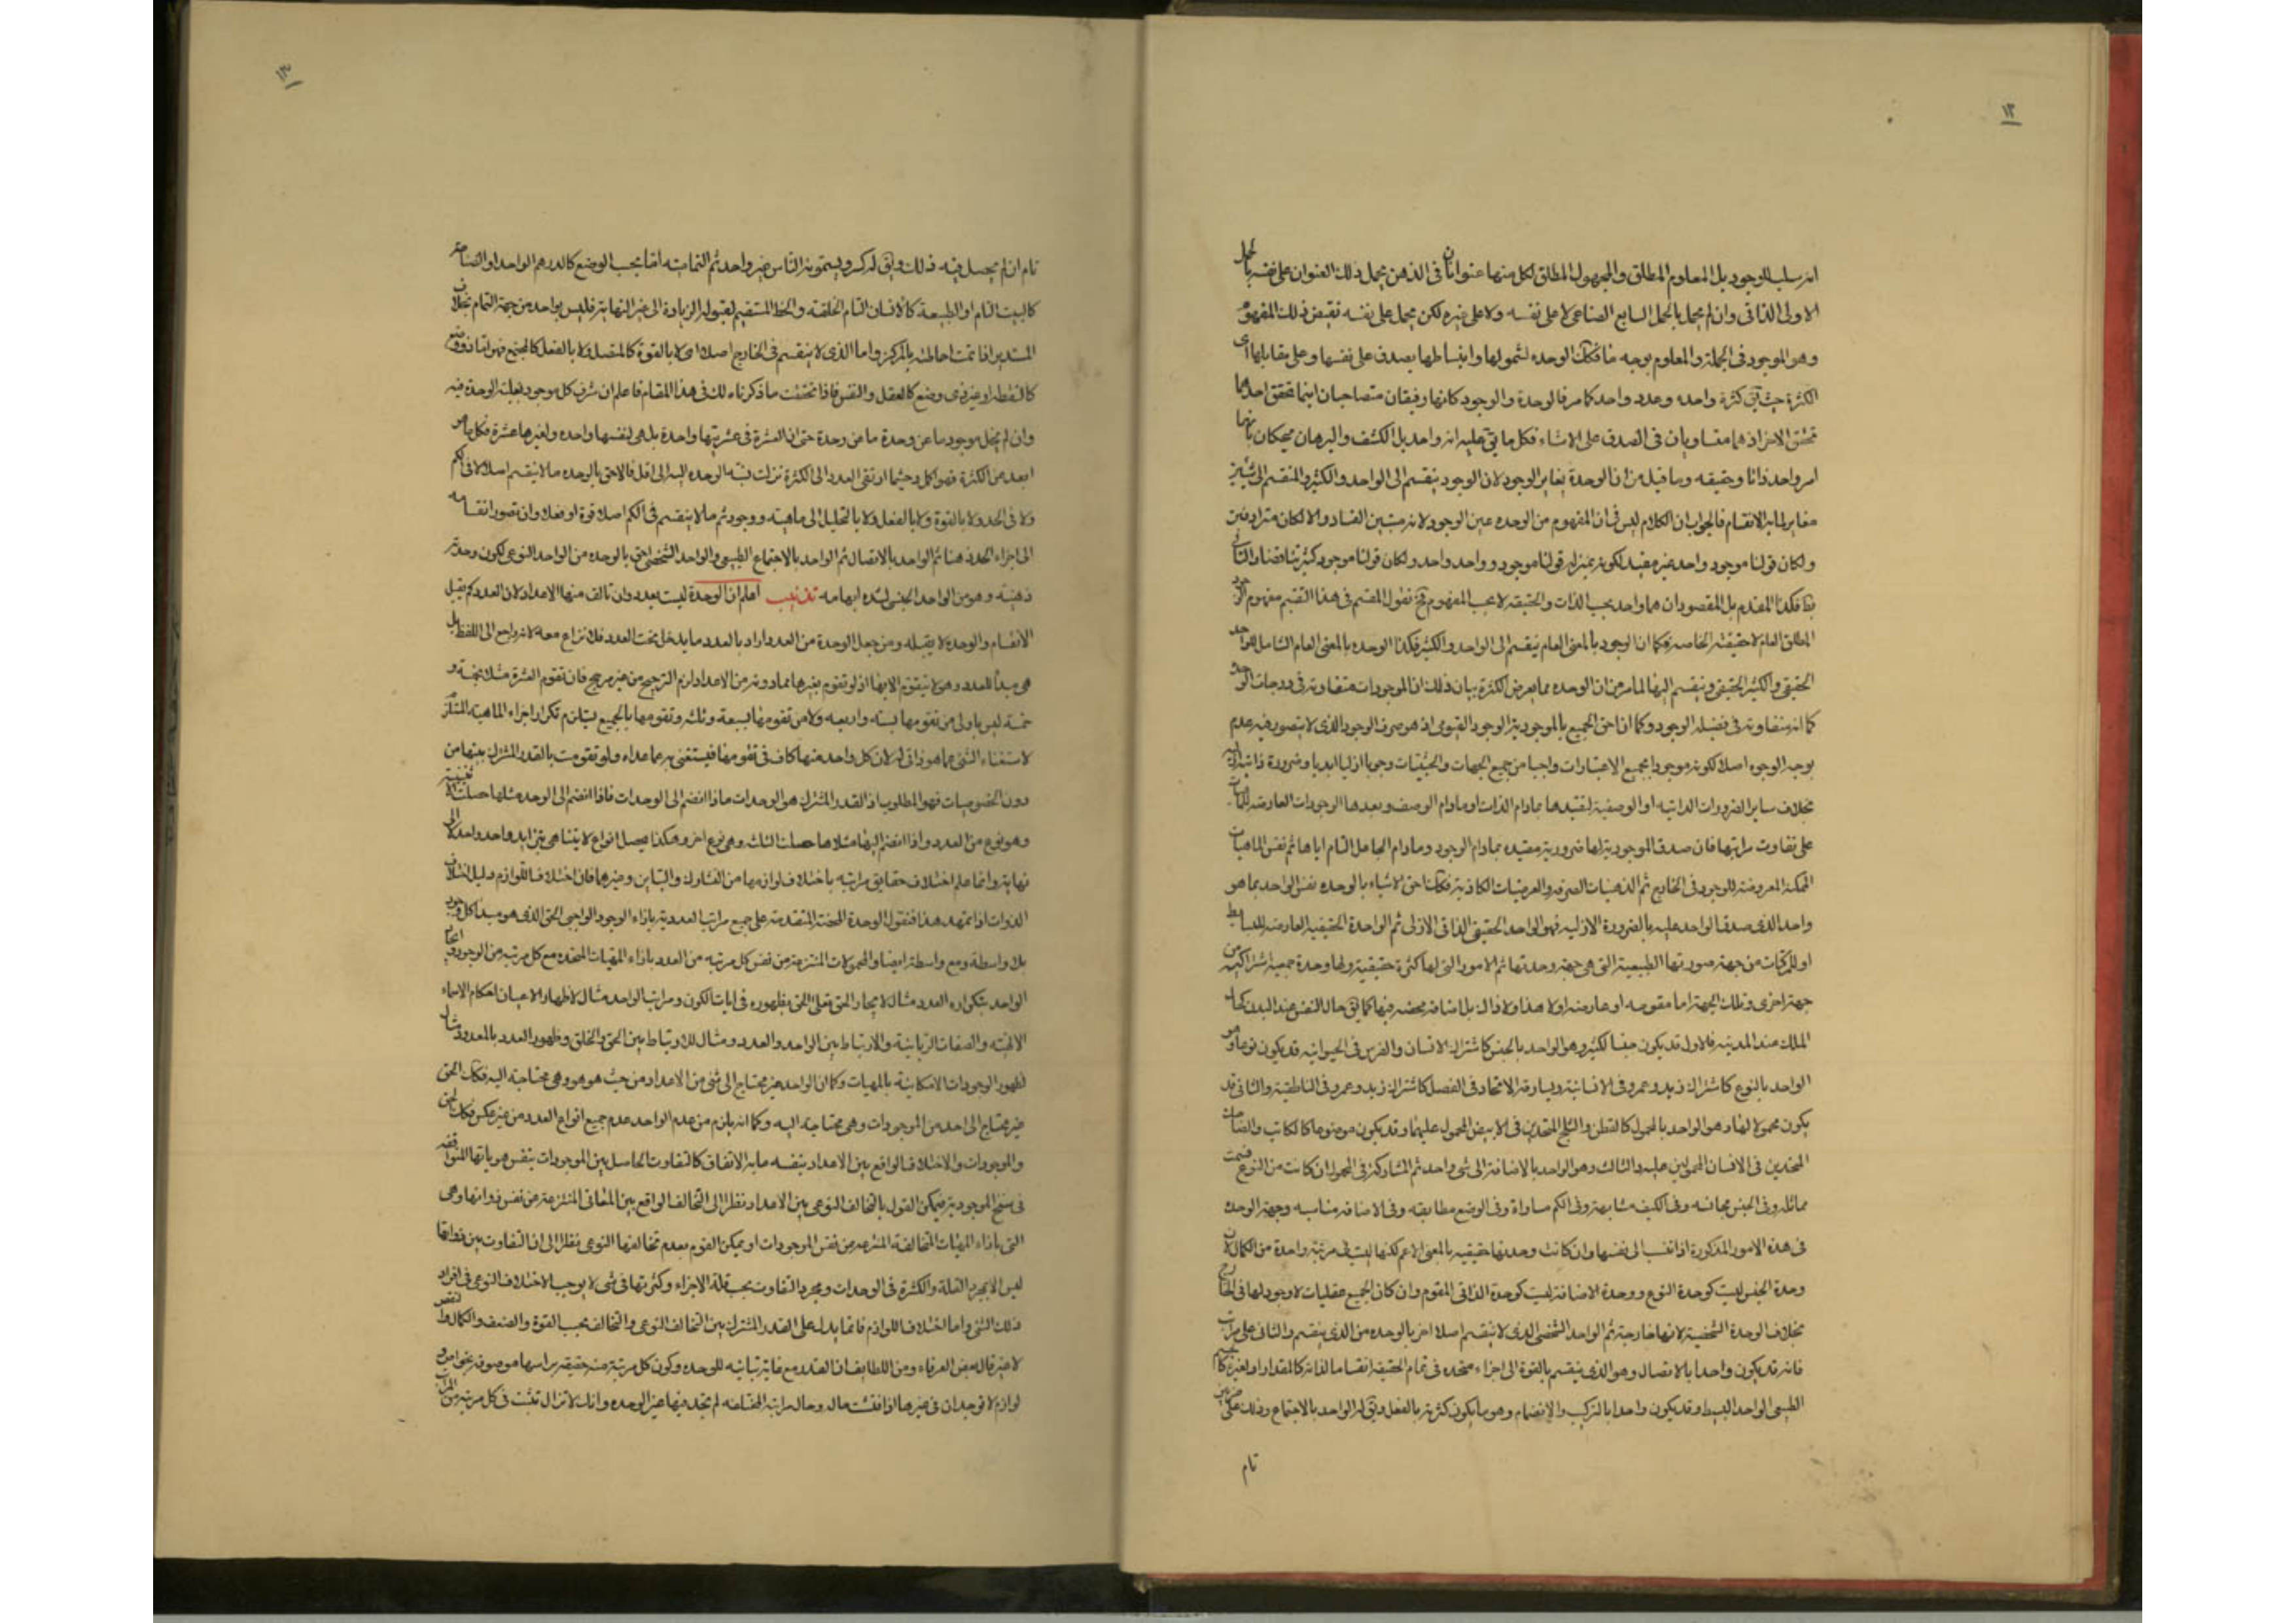 ١٢
انه سلب للوجود بل المعلوم المطلق والمجهول المطلق لكل منها عنوانان فى الذهن يحمل ذلك العنوان على نفسه بالحمل
الاولى الذاتى وان لم يحمل بالحمل السايع الصناعى لا على نفسه ولا على غيره لكن يحمل على نفسه نقيض ذلك المفهوم
وهو الموجود فى الجملة والمعلوم بوجه ما فكك الوحده لشمولها وانبساطها يصدق على نفسها وعلى مقابلها اى
الكثرة حيث يق كثرة واحده وعدد واحد كما مر فالوحدة والوجود كانها رفيقان متصاحبان اينما تحقق احدهما
تحقق الاخر اذ هما متساويان فى الصدق على الاشاء فكل ما يق عليه انه واحد بل الكشف والبرهان يحكمان بانهما
امر واحد ذاتا وحقيقه وما قيل من ان الوحدة يغاير الوجود لان الوجود ينقسم الى الواحد والكثير والمنقسم الى شيئين
مغاير لما به الانقسام فالجواب ان الكلام ليس فى ان المفهوم من الوحده عين الوجود لانه مبتين الفساد والا لكان مترادفين
ولكان قولنا موجود واحد غير مفيد لكونه بمنزله قولنا موجود و واحد واحد ولكان قولنا موجود كثير تناقضا والتالى
بط فكذا المقدم بل المقصود ان هما واحد بحسب الذات والحقيقه لا بحسب المفهوم فح نقول المقسم فى هذا التقسيم مفهوم الوجود
المطلق العام لا حقيقته الخاصه فكما ان الوجود بالمعنى العام ينقسم الى الواحد والكثير فكذا الوحده بالمعنى العام الشامل للواحد
الحقيقى والكثير الحقيقى وينقسم اليها لما مر من ان الوحده مما يعرض الكثرة بيان ذلك ان الموجودات متفاوته فى درجات الوحدة
كما انه متفاوته فى فضيله الوجود وكما ان احق الجميع بالموجودية الوجود القيومى اذ هو صرف الوجود الذى لا يتصور فيه عدم
بوجه الوجوه اصلا لكونه موجودا بجميع الاعتبارات واجبا من جميع الجهات والحيثيات وجوبا ازليا ابديا وضرورة ذاتيه ازليه
بخلاف ساير الضرورات الذاتيه او الوصفية لتقيدها بمادام الذات او مادام الوصف وبعدها الوجودات العارضه للماهيات
على تفاوت مراتبها فان صدق الموجودية لها ضرورية مقيده بمادام الوجود ومادام الجاعل التام اياها ثم نفس الماهيات
الممكنة المعروضة للوجود فى الخارج ثم الذهنيات الصرفه والفرضيات الكاذبة فكك احق الاشياء بالوحده نفس الواحد بما هو
واحد الذى صدق الواحد عليه بالضرورة الازليه فهو الواحد الحقيقى الذاتى الازلى ثم الواحدة الحقيقيه العارضه للبسايط
او للمركبات من جهة صورتها الطبيعية التى هى جهة وحدتها ثم الامور التى لها كثرة حقيقية ولها وحدة جمعية اشتراكيه من
جهة اخرى وتلك الجهة اما مقومه او عارضه او لا هذا ولا ذاك بل اضافة محضه فيها كما يق حال النفس عند البدن كحال
الملك عند المدينه فالاول قد يكون جنسا لكثير وهو الواحد بالجنس كاشتراك الانسان والفرس فى الحيوانيه قد يكون نوعا وهو
الواحد بالنوع كاشتراك زيد وعمرو فى الانسانية ويساوقه الاتحاد فى الفصل كاشتراك زيد وعمرو فى الناطقية والثانى قد
يكون محمولا لها وهو الواحد بالمحمول كالقطن والثلج المتحدين فى الابيض المحمول عليهما وقد يكون موضوعا كالكاتب والضاحك
المتحدين فى الانسان المحمولين عليه والثالث وهو الواحد بالاضافة الى شى واحد ثم المشاركة فى المحمول ان كانت من النوع فسميت
مماثله وفى الجنس مجانسه وفى الكيف مشابهة وفى الكم مساواة وفى الوضع مطابقه وفى الاضافه مناسبه وجهة الوحدة
فى هذه الامور المذكورة اذا نسب الى نفسها وان كانت وحدتها حقيقيه بالمعنى الاعم لكنها ليت فى مرتبة واحدة من الكمال لان
وحدة الجنس ليست كوحدة النوع ووحدة الاضافة ليست كوحدة الذاتى المقوم وان كان الجميع عقليات لا وجود لها فى الخارج
بخلاف الوحدة الشخصية لانها خارجية ثم الواحد الشخصى الذى لا ينقسم اصلا احق بالوحده من الذى ينقسم والثانى على مراتب
فانه قد يكون واحدا بالاتصال وهو الذى ينقسم بالقوة الى اجزاء متحده فى تمام الحقيقه انقساما لذاته كالمقدار او لغيره كالجسم
الطبيعى الواحد البسيط وقد يكون واحدا بالتركيب والانضمام وهو ما يكون كثرته بالفعل ويق له الواحد بالاجتماع وذلك على ضربين
تام
١٣
تام ان لم يحصل فيه ذلك ويق له كسر ويسمونه الناس غير واحد ثم التماميته اما بحسب الوضع كالدرهم الواحد او الصناعة
كالبيت التام او الطبيعة كالانسان التام الخلقة والخط المستقيم لقبوله الزيادة الى غير النهاية فليس بواحد من جهة التمام بخلاف
المستدير اذا تمت احاطته بالمركز واما الذى لا ينقسم فى الخارج اصلا اى لا بالقوة كالمتصل ولا بالفعل كالمجتمع فهو اما ذو وضع
كالنقطة او غير ذى وضع كالعقل والنفس فاذا تحققت ما ذكرناه لك فى هذا المقام فاعلم ان شرف كل موجود بغلبة الوحدة فيه
وان لم يخل موجود ما عن وحدة ما عن وحدة حتى ان العشرة فى عشريتها واحدة بل هى لنفسها واحده ولغيرها عشرة فكل ما هو
ابعد من الكثرة فهو اكمل وحيثما ارتقى العدد الى الكثرة نزلت نسبة الوحده اليه الى اقل فالاحق بالوحده ما لا ينقسم اصلا لا فى الكم
ولا فى الحد ولا بالقوة ولا بالفعل ولا بالتحليل الى ماهية ووجود ثم ما لا ينقسم فى الكم اصلا قوة او فعلا وان تصور انقسامه
الى اجزاء الحد ذهنا ثم الواحد بالاتصال ثم الواحد بالاجتماع الطبيعى والواحد الشخصى احق بالوحده من الواحد النوعى لكون وحدته
ذهنية وهو من الواحد الجنسى لشده ابهامه تذنيب اعلم ان الوحدة ليست بعدد وان تالف منها الاعداد لان العدد كم يقبل
الانقسام والوحده لا يقبله ومن جعل الوحدة من العدد اراد بالعدد ما يدخل تحت العدد فلا نزاع معه لانه راجع الى اللفظ بل
هى مبدأ للعدد وهو لا يتقوم الا بها اذ لو تقوم بغيرها مما دونه من الاعداد لزم الترجيح من غير مرجح فان تقوم العشرة مثلا بخمسة و
خمسة ليس باولى من تقومها بستة واربعه ولا من تقومها بسبعة وثلثه وتقومها بالجميع يستلزم تكرار اجزاء الماهية المستلزم
لاستغناء الشئ عما هو ذاتى له لان كل واحد منها كاف فى تقومها فيستغنى به عما عداه ولو تقومت بالقدر المشترك بينها من
دون الخصوصيات فهو المطلوب اذ القدر المشترك هو الوحدات ماذا انضم الى الوحدات فاذا انضم الى الوحده مثلها حصلت الاثنينية
وهو نوع من العدد واذا انضم اليها مثلاها حصلت الثلثه وهى نوع اخر وهكذا يحصل انواع لا يتناهى بتزايد واحد واحد لا الى
نهاية وانما علم اختلاف حقايق مراتبه باختلاف لوازمها من التشارك والتباين وغيرهما فان اختلاف اللوازم دليل اختلاف
الذوات اذا تمهد هذا فنقول الوحدة المحضة المتقدمة على جميع مراتب العدديه بازاء الوجود الواجبى الحق الذى هو مبدا كل وجود
بلا واسطة ومع واسطة ايضا والمحمولات المنتزعة من نفس كل مرتبه من العدد بازاء المهيات المتحده مع كل مرتبه من الوجود وايجاد
الواحد بتكراره العدد مثال لايجاد الحق تعلى الخلق بظهوره فى ايات الكون ومراتب الواحد مثال لاظهار الاعيان احكام الاسماء
الالهيه والصفات الربانية والارتباط بين الواحد والعدد مثال للارتباط بين الحق والخلق وظهور العدد بالمعدود مثال
لظهور الوجودات الامكانية بالمهيات وكما ان الواحد غير محتاج الى شئ من الاعداد من حيث هو هو وهى محتاجة اليه فكك الحق
غير محتاج الى احد من الموجودات وهى محتاجة اليه وكما انه يلزم من عدم الواحد عدم جميع انواع العدد من غير عكس فكك الحق
والموجودات والاختلاف الواقع بين الاعداد بنفسه ما به الاتفاق كالتفاوت الحاصل بين الموجودات بنفس هوياتها المتوافقه
فى سنخ الموجودية فيمكن القول بالتخالف النوعى بين الاعداد نظرا الى التخالف الواقع بين المعانى المنتزعة من نفس ذواتها وهى
التى بازاء المهيات المتخالفة المنتزعه من نفس الموجودات او يمكن القوم بعدم تخالفها النوعى نظرا الى ان التفاوت بين ذواتها
ليس الا بمجرد القلة والكثرة فى الوحدات ومجرد التفاوت بحسب قلة الاجزاء وكثرتها فى شى لا يوجب الاختلاف النوعى فى افراد
ذلك الشئ واما اختلاف اللوازم فانما يدل على القدر المشترك بين التخالف النوعى والتخالف بحسب القوة والضعف والكمال والنقص
لا غير قال بعض العرفاء ومن اللطايف ان العدد مع غاية تباينه للوحده وكون كل مرتبة منه حقيقه براسها موصوفه بخواص و
لوازم لا توجدان فى غيرها اذا فتشت حاله وحال مراتبه المختلفه لم تجد فيها غير الوحده وانك لا تزال تثبت فى كل مرتبة من المراتب